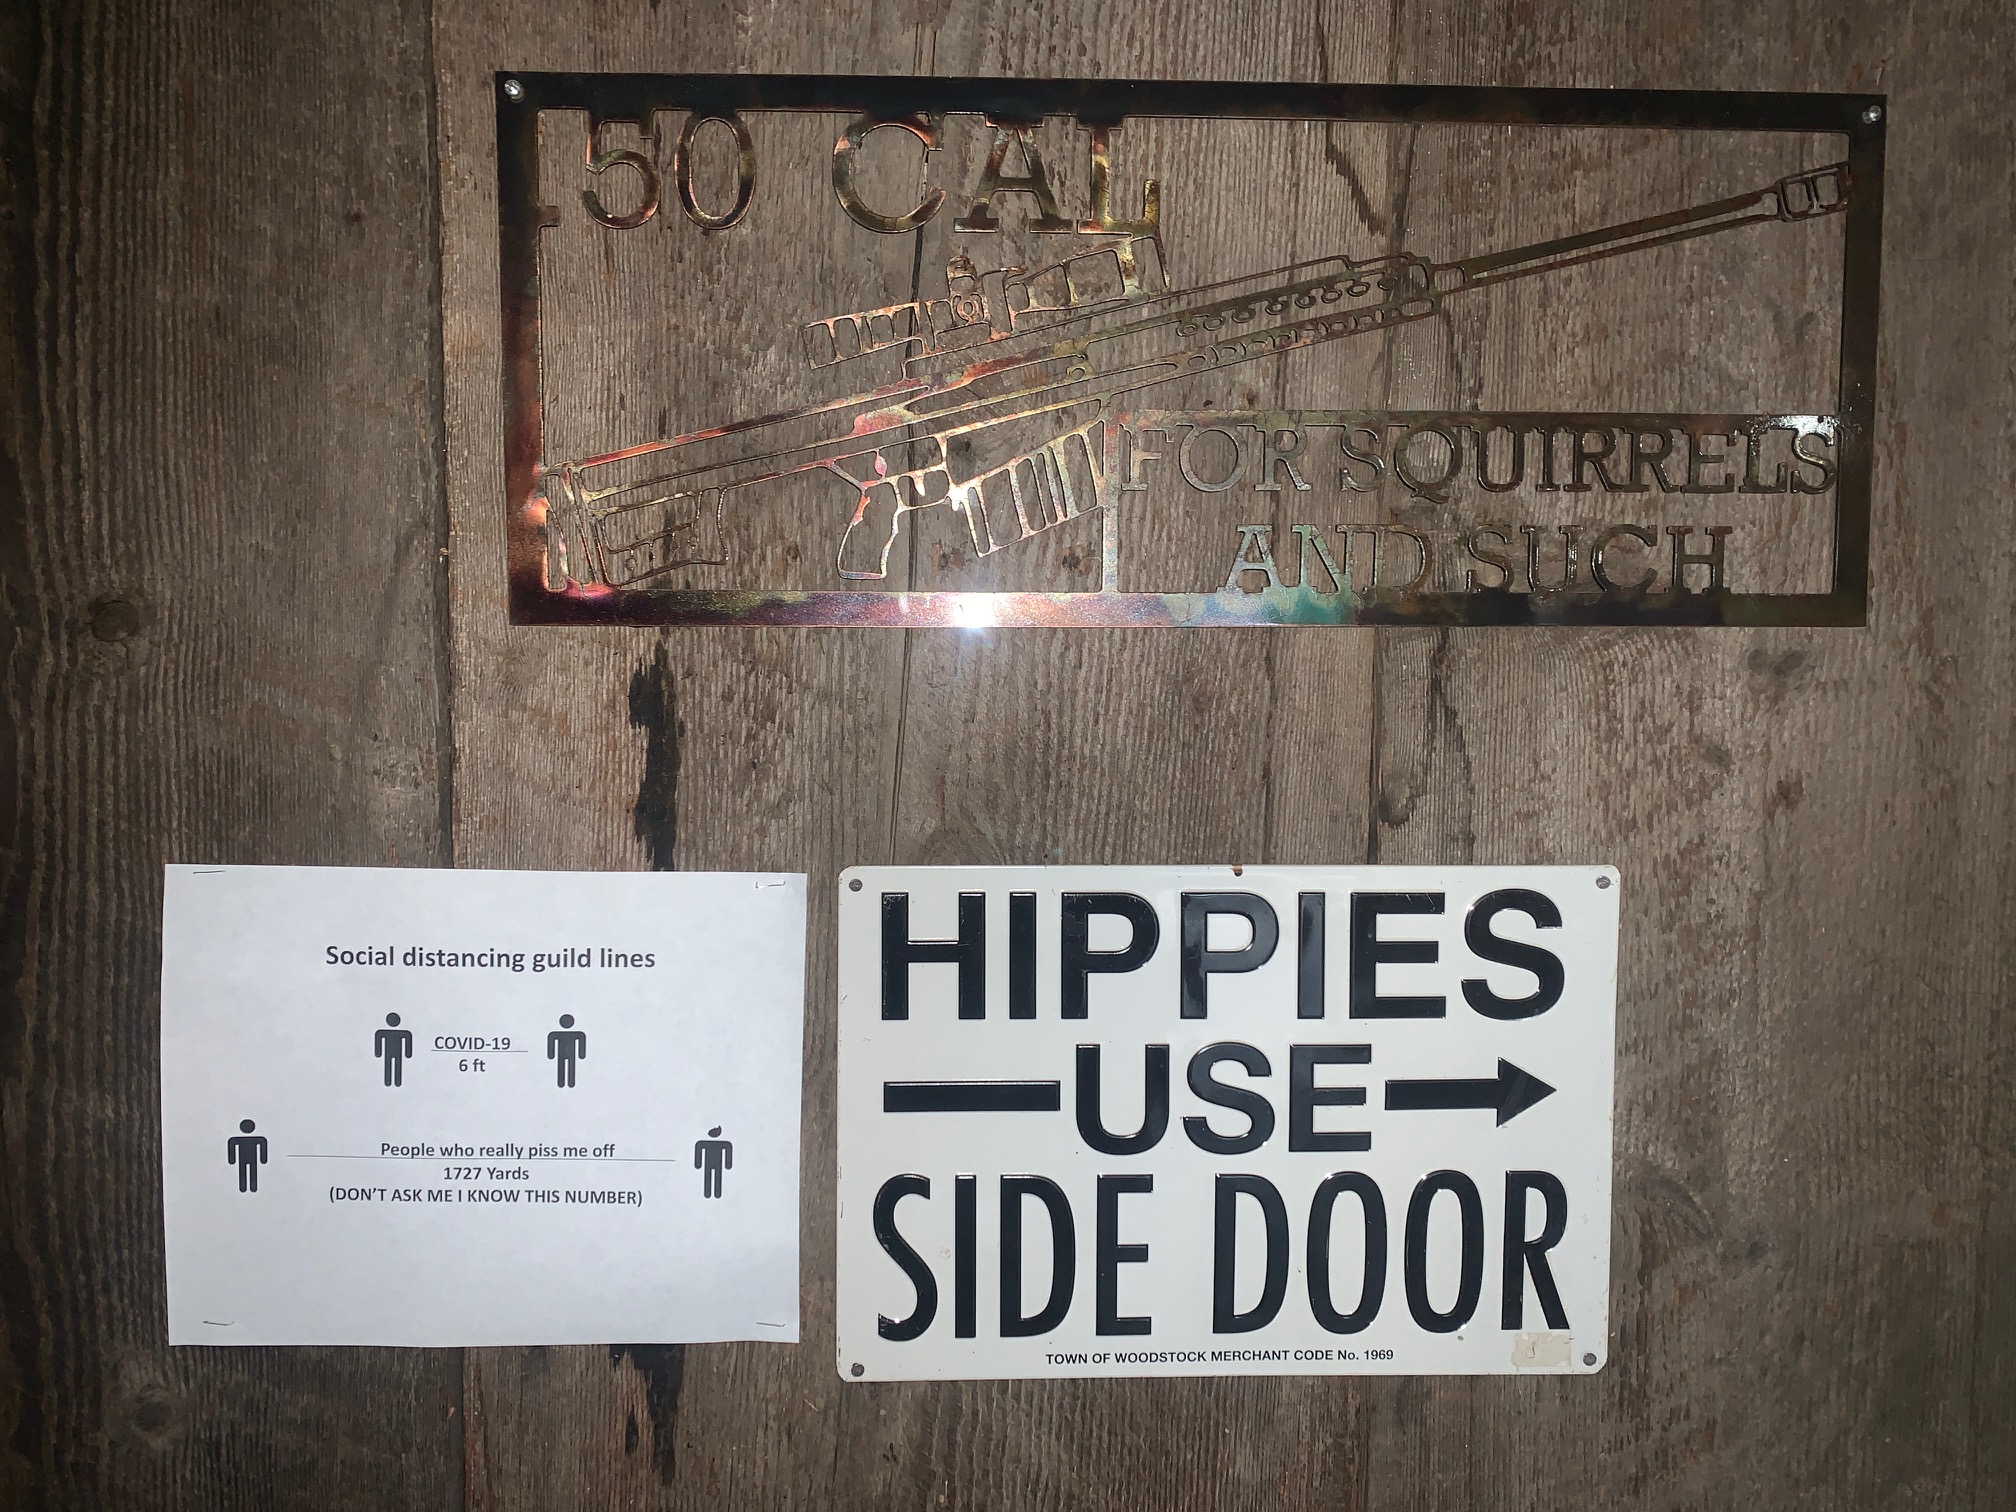 50 CAL
FOR SQUIRRELS
AND SUCH
Social distancing guild lines
COVID-19
6 ft
People who really piss me off
1727 Yards
(DON'T ASK ME I KNOW THIS NUMBER)
HIPPIES
USE
SIDE DOOR
TOWN OF WOODSTOCK MERCHANT CODE No. 1969